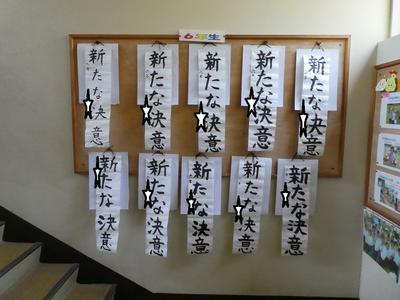 6年生
新たな決意
新たな決意
新たな決意
新たな決意
新たな決意
新たな決意
新たな決意
新たな決意
新たな決意
新たな決意